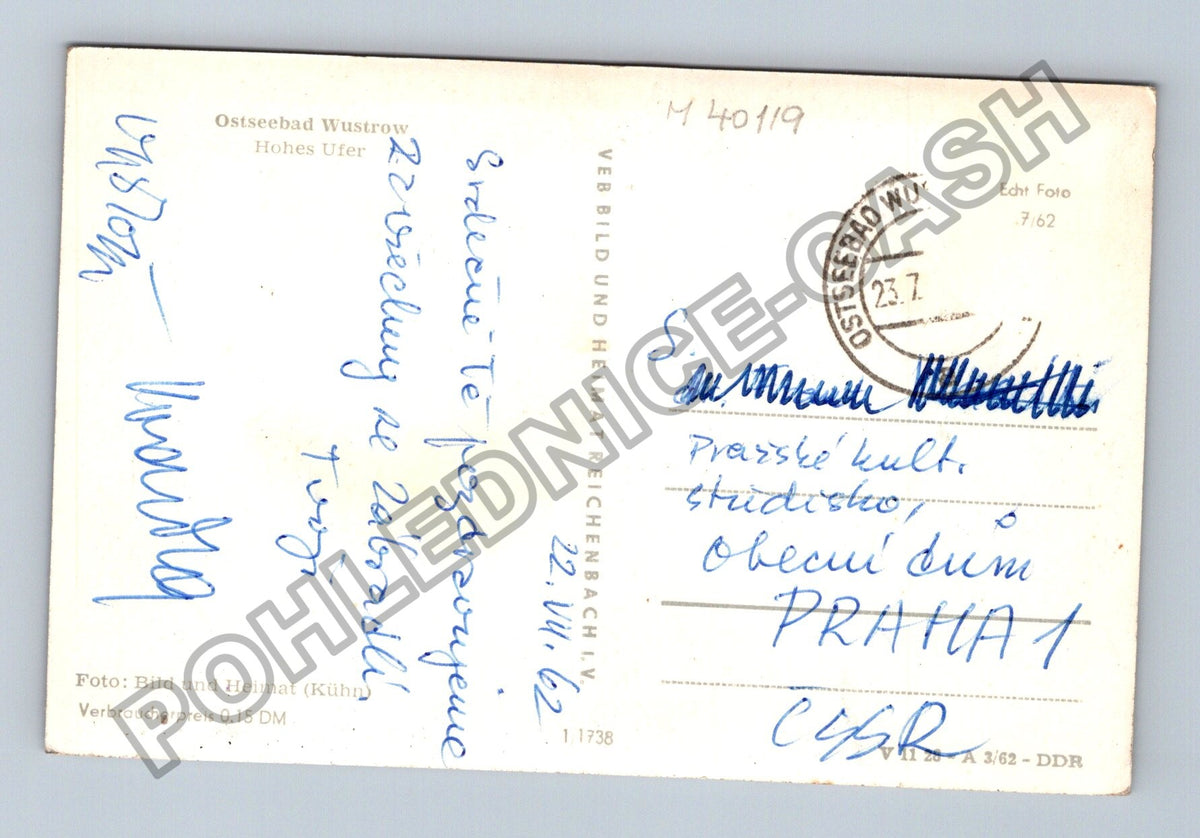 Ostseebad Wustrow
Hohes Ufer
M 40119
Echt Foto
7/62
OSTSEEBAD WU
23.7
22.VII.62
Srdečně Tě pozdravujeme
z dovolené
se
Tvoji
S.
Pražské kult.
středisko,
Obecní dům
PRAHA 1
ČSSR
VEB BILD UND HEIMAT REICHENBACH I. V.
Foto: Bild und Heimat (Kühn)
Verbraucherpreis 0,15 DM
1 1738
V 11 28 - A 3/62 - DDR
POHLEDNICE-CASH